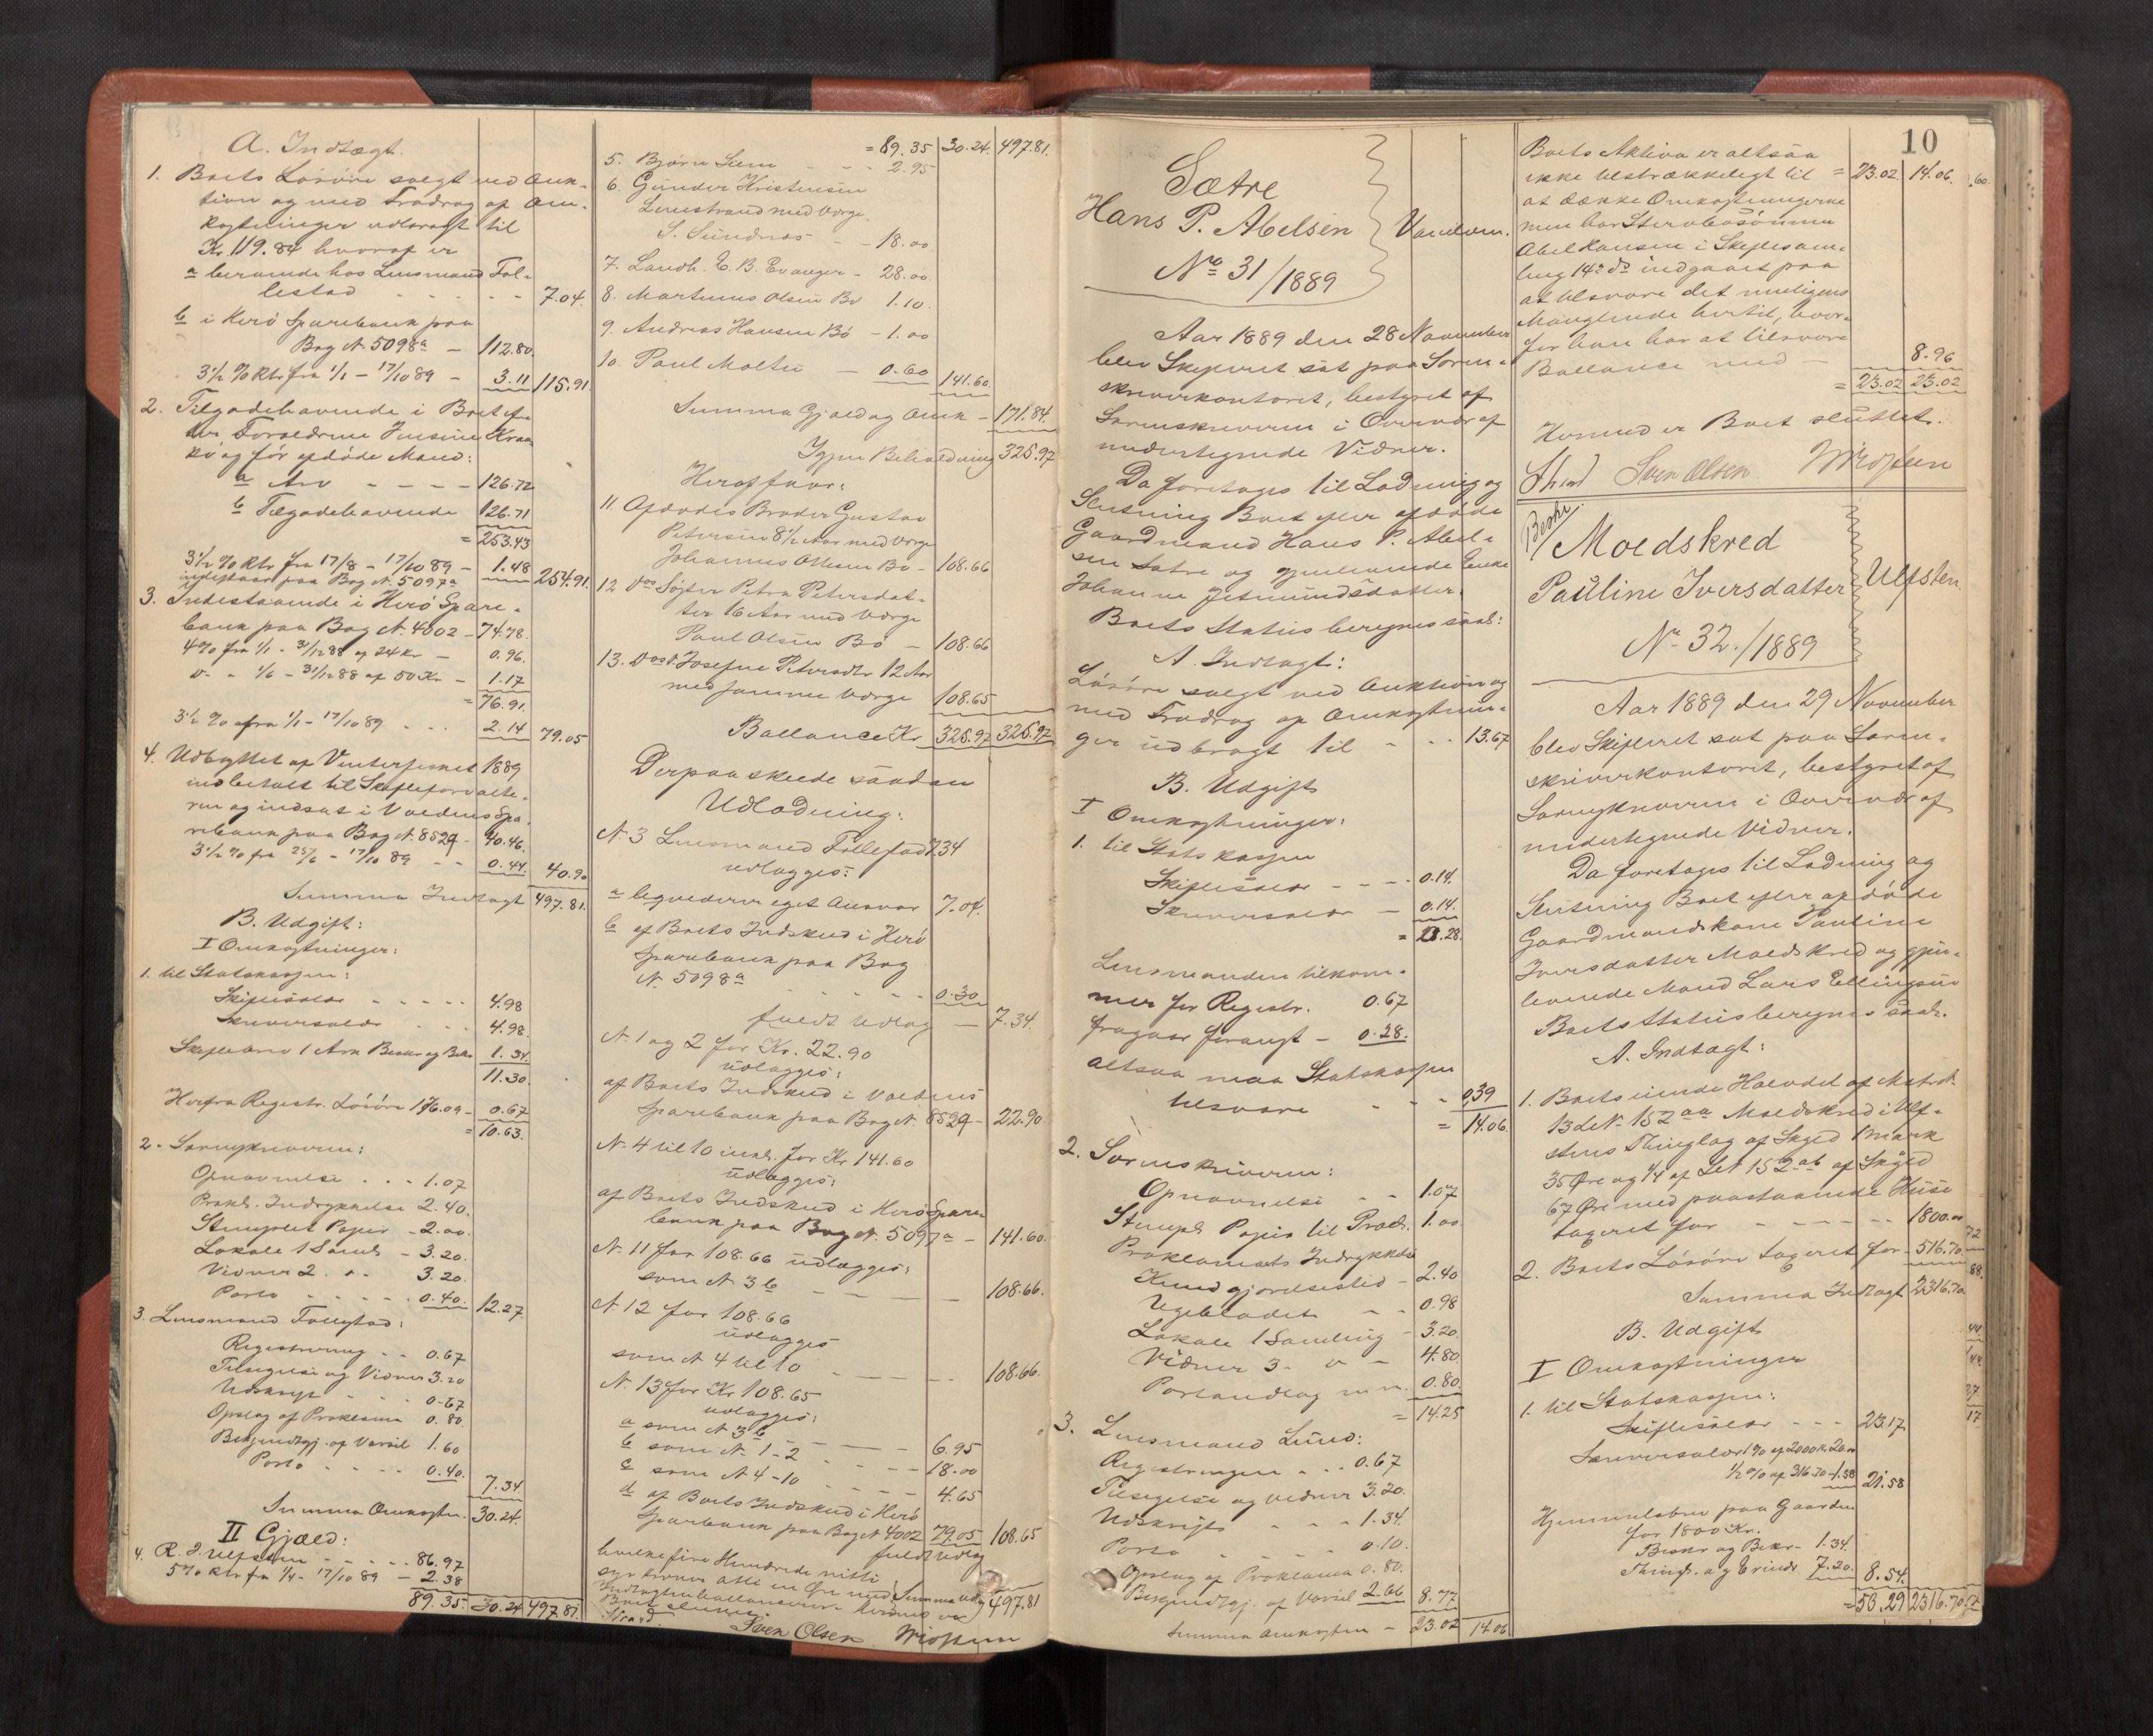 A. Indtægt.
1. Boets Løsøre solgt ved Auk-
tion og med Fradrag af Om-
kostninger udbragt til
Kr. 119.84 hvoraf er
a beroende hos Lensmand Fol-
lestad - - - - 7.04.
b i Herø Sparebank paa
Bog N. 5098a - 112.80.
3½ % Rtr fra 1/1 - 17/10 89 - 3.11 115.91
2. Tilgodehavende i Boet ef-
ter Forældrene Jensine
og før afdøde Mand:
a Arv - - - - 126.72
b Tilgodehavende 126.71
= 253.43
3½ % Rtr fra 17/8 - 17/10 89 - 1.48 254.91.
indestaar paa Bog N. 5097a
3. Indestaaende i Herø Spare-
bank paa Bog N. 4002 - 74.78.
4% fra 1/1 - 31/12 88 af 24 Kr - 0.96.
do - 1/6 - 31/12 88 af 50 Kr - 1.17
= 76.91.
3½ % fra 1/1 - 17/10 89 - - 2.14 79.05
4. Udbyttet af Vinterfisket 1889
indbetalt til Skifteforvalte-
ren og indsat i Voldens Spa-
rebank paa Bog N. 8529 - 40.46.
3½ % fra 25/6 - 17/10 89 - - 0.44. 40.90
Summa Indtægt 497.81.
B. Udgift:
I Omkostninger:
1. til Statskassen:
Skiftesalær - - - - - 4.98
Skriversalær - - - 4.98.
Skiftebrev 1 Ark Beskr og Bekr 1.34.
11.30.
Herfra Registr. Løsøre 176.09 - 0.67
= 10.63.
2. Sorenskriveren:
Opnævnelse - - - 1.07
Prokl. Indrykkelse 2.40.
Stemplet Papir - 2.00.
Lokale 1 Saml. - 3.20.
Vidner 2 - - 3.20.
Porto - - - - - 0.40. 12.27.
3. Lensmand Follestad:
Registrering - - 0.67
Tilsigelse og Vidner 3.20
Udskrift - - - 0.67
Opslag af Proklama 0.80.
Bekjendtgj. af Varsel 1.60
Porto - - - - 0.40. 7.34.
Summa Omkostn. 30.24.
II Gjæld:
4. R. J. Ulfsten - - - - 86.97
5% Rtr fra 1/4 - 17/10 89 - 2.38
89.35. 30.24 497.81.
= 89.35 30.24. 497.81.
5. Bjørn Siem - - 2.95
6. Gunder Kristensen
Lines­trand med Værge
S. Sundnes - - 18.00
7. Landh. E. B. Evanger - 28.00.
8. Martinus Olsen Bø 1.10.
9. Andreas Hansen Bø - 1.00
10. Paul Moltu - 0.60 141.60
Summa Gjæld og Omk - 171.84.
Igjen Beholdning 325.97
Heraf faar:
11. Afdødes Broder Gustav
Petersen 8½ Aar med Værge
Johannes Olsen Bø - 108.66
12. Dos Søster Petra Petersdat-
ter 16 Aar med Værge
Paul Olsen Bø - 108.66
13. Dos do Josefine Petersdtr 12 Aar
med samme Værge 108.65
Ballance Kr. 325.97 325.97
Derpaa skeede saadan
Udlodning:
N. 3 Lensmand Follestad 7.34
udlægges:
a liqviderer eget Ansvar 7.04.
b af Boets Indskud i Herø
Sparebank paa Bog
N. 5098a - - - - 0.30
fuldt Udlæg - 7.34.
N. 1 og 2 for Kr. 22.90
udlægges:
af Boets Indskud i Voldens
Sparebank paa Bog N. 8529 - 22.90
N. 4 til 10 inkl. for Kr 141.60
udlægges:
af Boets Indskud i Herø Spare-
bank paa Bog N. 5097a - 141.60.
N. 11 for 108.66 udlægges:
som N. 3 b - - - - 108.66.
N. 12 for 108.66
udlægges
som N. 4 til 10 - - - - 108.66.
N. 13 for Kr 108.65
udlægges:
a som N. 3 b - - - - 6.95
b som N. 1 - 2 - - - - 18.00
c som N. 4 - 10 - - - - 4.65
d af Boets Indskud i Herø
Sparebank paa Bog N. 4002 79.05 108.65
fuldt Udlæg
hvilke fire Hundrede nitti
syv kroner otti en Øre med Summa Udlæg 497.81
Indtægten ballancerer. hermed er
Boet sluttet.
Strand. Sven Olsen
Sætre
Hans P. Abelsen Vanelven.
No 31/1889
Aar 1889 den 28 November
blev Skifteret sat paa Soren-
skriverkontoret, bestyret af
Sorenskriveren i Overvær af
undertegnede Vidner.
Da foretages til Lodning og
Slutning Boet efter afdøde
Gaardmand Hans P. Abel-
sen Sætre og gjenlevende Enke
Johanne Jetmundsdatter.
Boets Status beregnes saal:
A. Indtægt:
Løsøre solgt ved Auktion og
med Fradrag af Omkostnin-
ger udbragt til - - - 13.67
B. Udgift
I Omkostninger:
1. til Statskassen
Skiftesalær - - - 0.14.
Skriversalær - 0.14.
= 0.28.
Lensmanden tilkom-
mer for Registr. 0.67
fragaar foranst - 0.28.
altsaa maa Statskassen
tilsvare - - - 0,39
= 14.06.
2. Sorenskriveren:
Opnævnelse - - 1.07
Stempl. Papir til Prokl. 1.00
Proklamats Indrykkelse
Kundgjørelsestid - 2.40
Ugebladet - - 0.98
Lokale 1 Samling - 3.20.
Vidner 3 - - - 4.80.
Portoudlæg m. m. 0.80.
= 14.25
3. Lensmand Lund:
Registreringen - - 0.67
Tilsigelse og Vidner 3.20.
Udskrift - - - 1.34.
Porto - - - - 0.10.
Opslag af Proklama 0.80.
Bekjendtgj. af Varsel 2.66 8.77
Summa Omkostn - 23.02 14.06
10
Boets Aktiva er altsaa
ikke tilstrækkeligt til = 23.02. 14.06.
at dække Omkostningerne
men har Sterbosønnen
Abel Hansen i Skiftesam-
ling 14de ds indgaaet paa
at tilsvare det muligens
Manglende hertil, hvor-
for han har at tilsvare
Ballance med - 8.96
= 23.02 23.02
Hermed er Boet sluttet.
Sven Olsen
Beskr.
Moedskred
Pauline Iversdatter Ulfsten
No 32./1889
Aar 1889 den 29 November
blev Skifteret sat paa Soren-
skriverkontoret, bestyret af
Sorenskriveren i Overvær af
undertegnede Vidner.
Da foretages til Lodning og
Slutning Boet efter afdøde
Gaardmandskone Pauline
Iversdatter Moedskred og gjen-
levende Mand Lars Ellingsen
Boets Status beregnes saal.
A. Indtægt:
1. Boets eiende Halvdel af Matr.N.
13 LN. 152aa Moedskred i Ulf-
stens Thinglag af Skyld 1 Mark
35 Øre og 1/4 af LN 152ab af Skyld
67 Øre med paastaaende Huse
taxeret for - - - - - 1800.00
2. Boets Løsøre taxeret for - 516.70.
Summa Indtægt 2316.70.
B. Udgift
I Omkostninger
1. til Statskassen:
Skiftesalær - - - 23.17
Skriversalær 1% af 2000 Kr. 20.00
½ % af 316.70 - 1.58 21.58
Hjemmelsbrev paa Gaarden
for 1800 Kr.
Beskr og Bekr - 1.34.
Thingl. og Erindr 7.20. 8.54.
= 53.29 2316.70